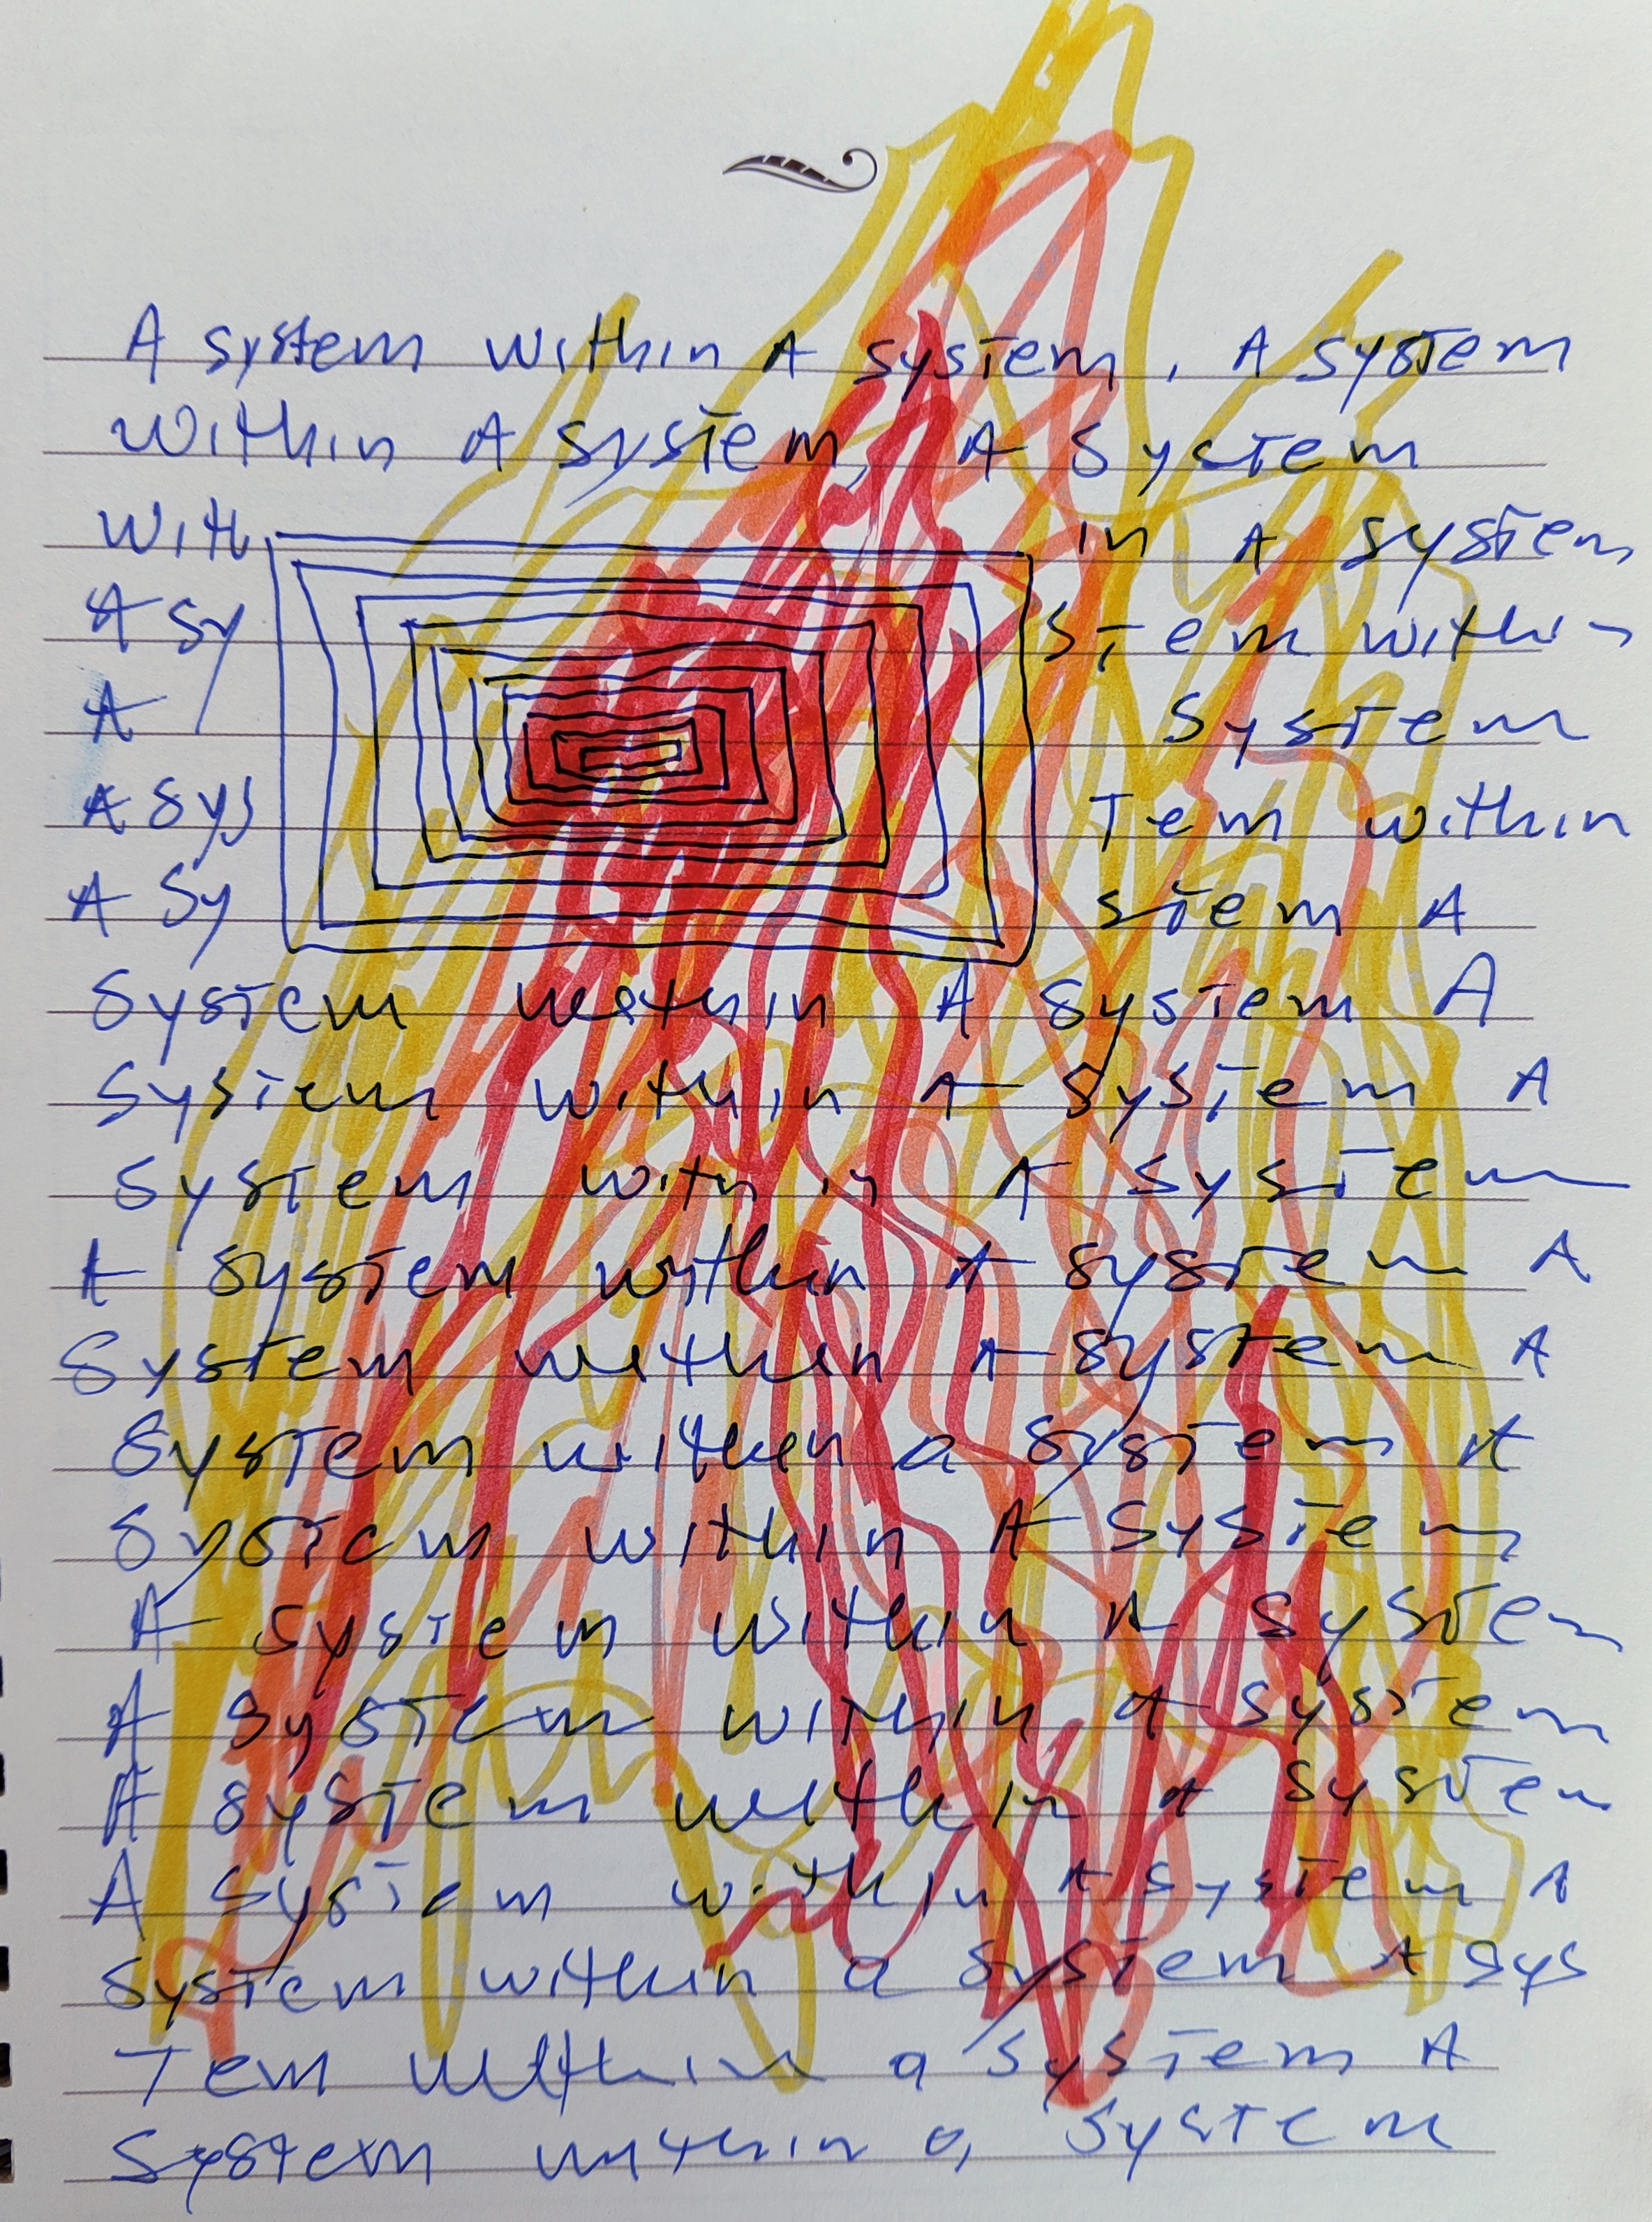 A system within A system, A system
within A system, A system
with in A system
A sy stem within
A system
A sys Tem within
A sy stem A
System within A system A
System within A system A
System within A system
A system within A system A
System within A system A
System within a system A
System within A system
A system within A system
A system within A system
A system within A system
A system within A system A
system within a system A sys
Tem within a system A
System within a system